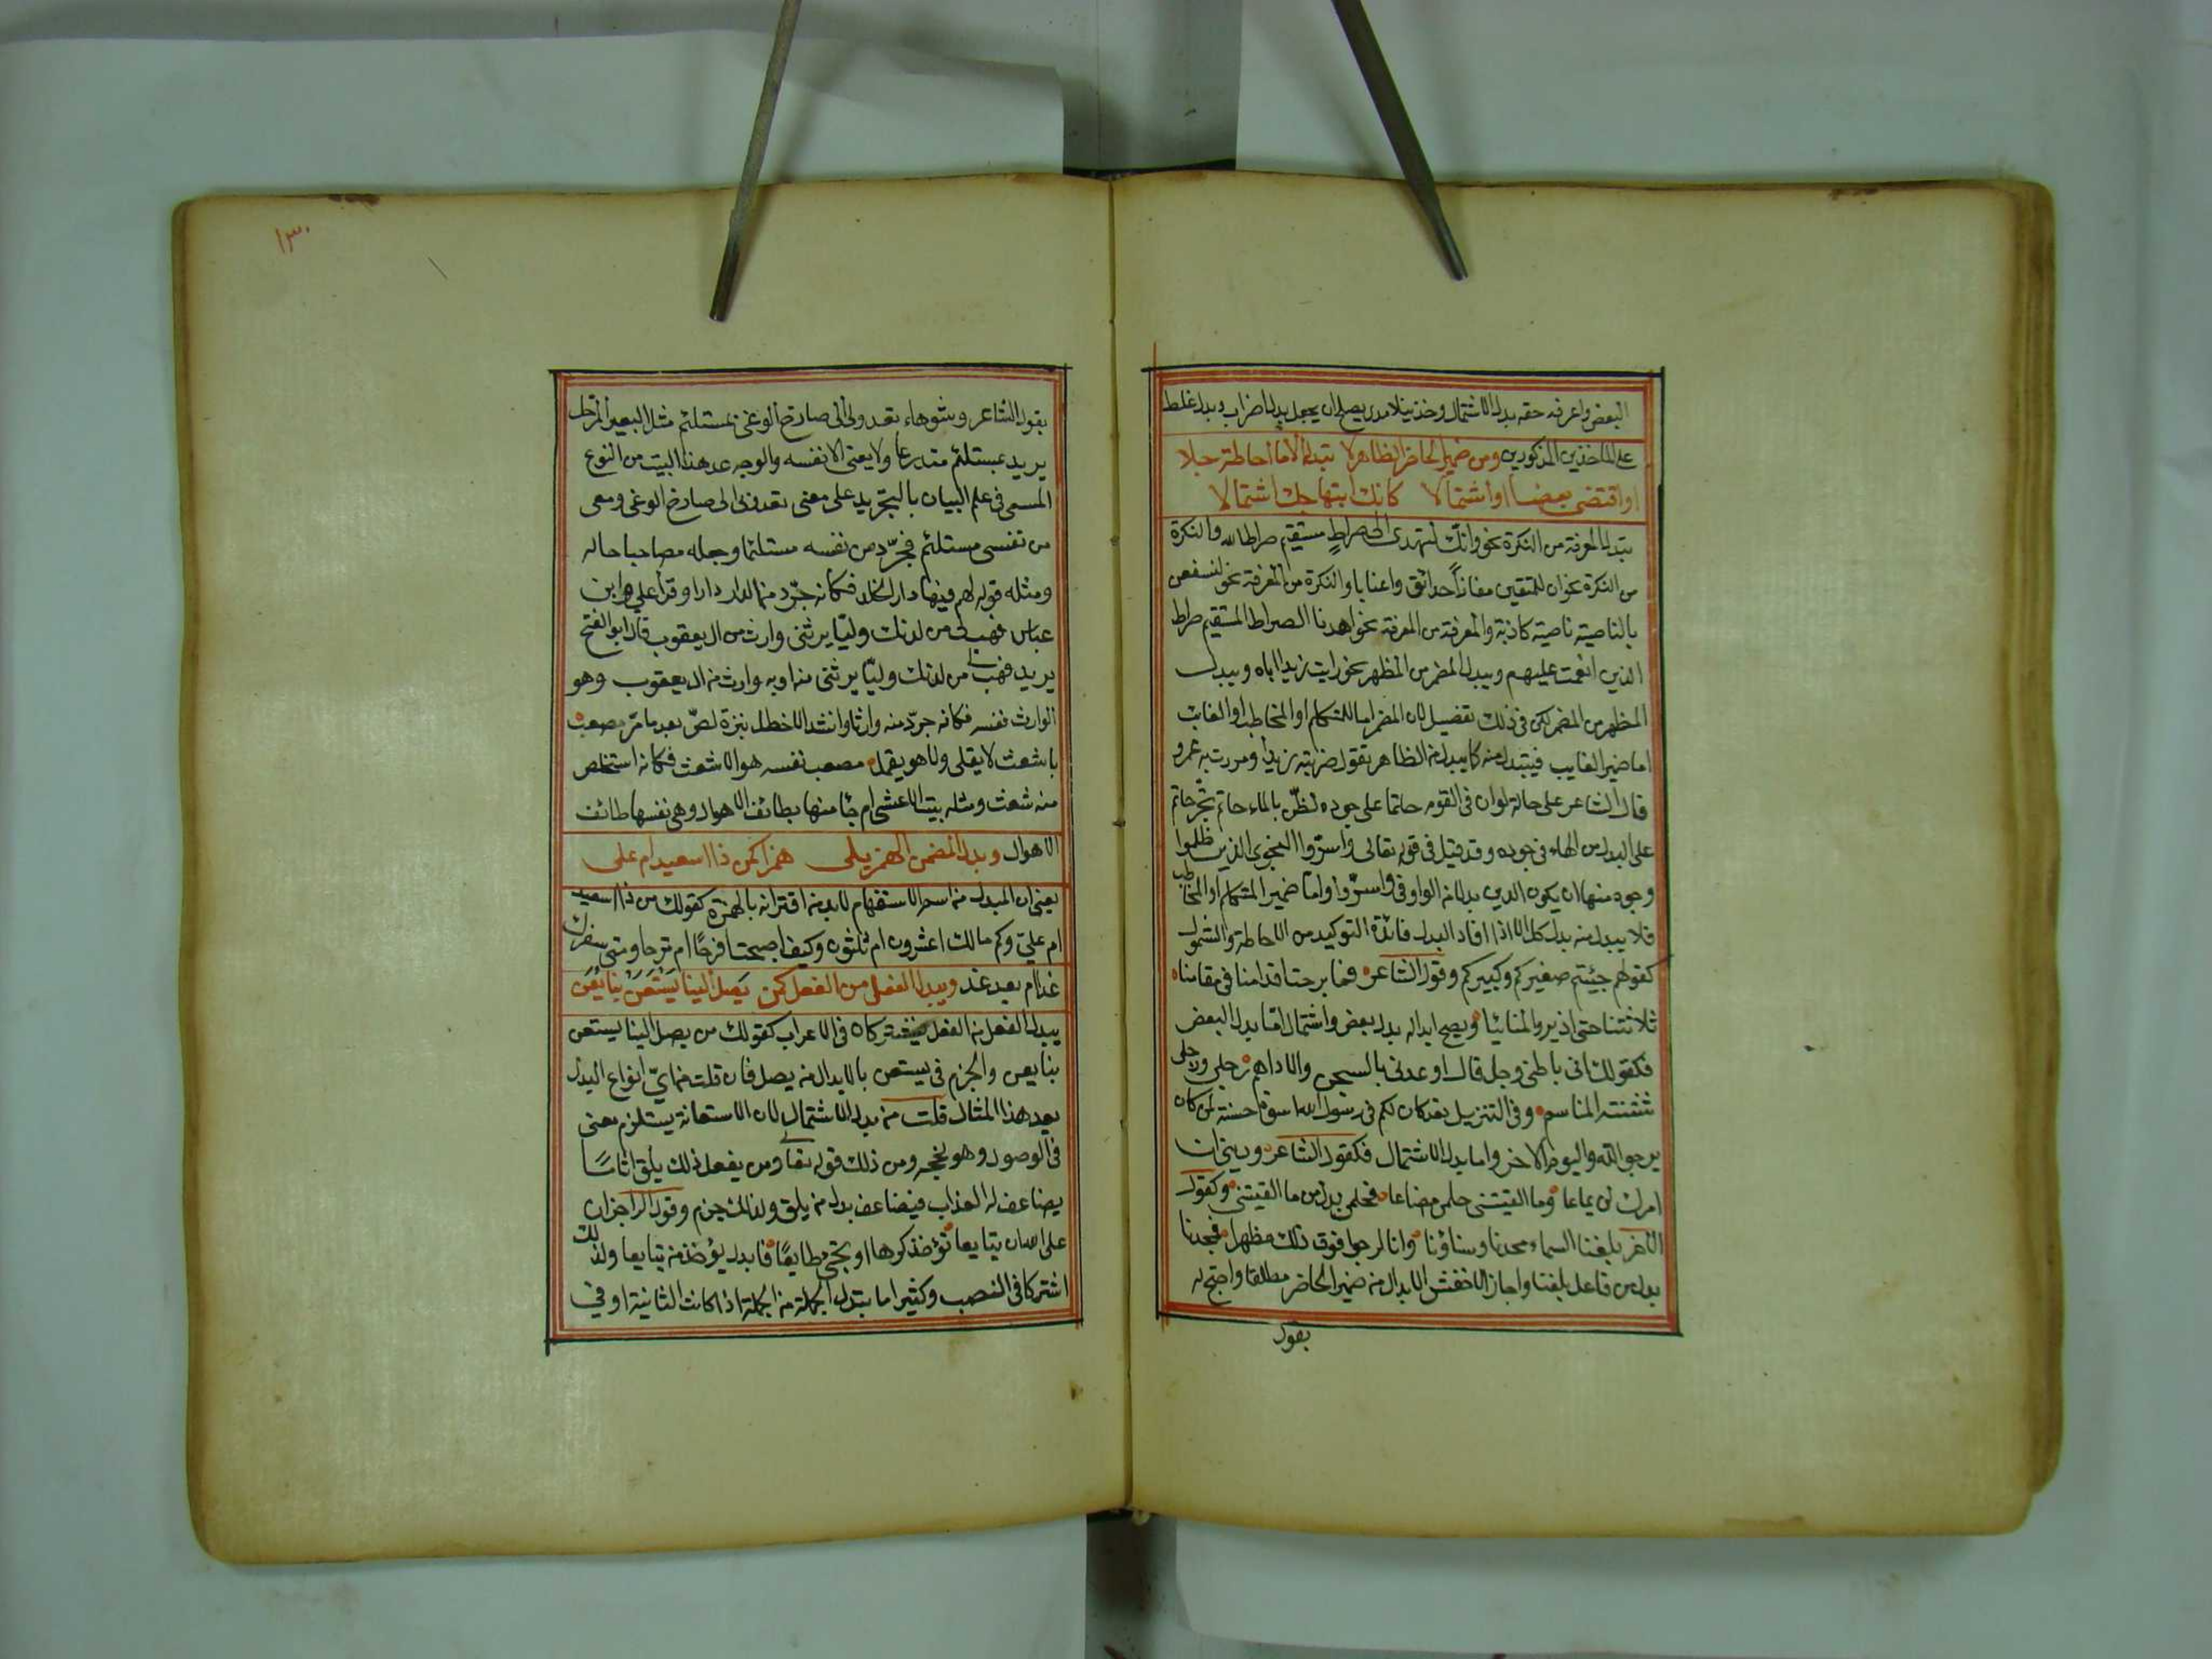 البعض واعرفه حقه بدل الاشتمال وخذ نبلا مدى يصلح ان يجعل بدل اضراب وبدل غلط
على الماخذين المذكورين ومن ضمير الحاضر الظاهر لا تبدله الا ما احاطة جلا
او اقتضى بعضا او اشتمالا كانك ابتهاجك اشتمالا
تبدل المعرفة من النكرة نحو وانك لتهدى الى صراط مستقيم صراط الله والنكرة
من النكرة نحو ان للمتقين مفازا حدائق واعنابا والنكرة من المعرفة نحو لنسفعن
بالناصية ناصية كاذبة والمعرفة من المعرفة نحو اهدنا الصراط المستقيم صراط
الذين انعمت عليهم ويبدل المضمر من المظهر نحو رايت زيدا اياه ويبدل
المظهر من المضمر لكن فى ذلك تفصيل لان المضمر اما للمتكلم او المخاطب او الغائب
اما ضمير الغايب فيتبدل منه كما يبدل من الظاهر تقول ضربته زيدا ومررت به عمرو
قال الشاعر على حالة لو ان فى القوم حاتما على جوده لضن بالماء حاتم بجر حاتم
على البدل من الهاء فى جوده وقد قيل فى قوله تعالى واسروا النجوى الذين ظلموا
وجوه منها ان يكون الذين بدلا من الواو فى واسروا واما ضمير المتكلم او المخاطب
فلا يبدل منه بدل كل الا اذا افاد البدل فائدة التوكيد من الاحاطة والشمول
كقولهم جئتم صغيركم وكبيركم وقول الشاعر فما برحت اقدامنا فى مقامنا
ثلاثتنا حتى ازيروا المنائيا ويصح ابداله بدل بعض واشتمال اما بدل البعض
فكقولك انى باطنى وجل قال اوعدنى بالسجن والاداهم رجلى ورجلى
شثنة المناسم وفى التنزيل لقد كان لكم فى رسول الله اسوة حسنة لمن كان
يرجو الله واليوم الاخر واما بدل الاشتمال فكقول الشاعر ذرينى ان
امرك لن يطاعا وما الفيتنى حلمى مضاعا فحلمى بدل من ما الفيتنى وكقول
الاخر بلغنا السماء مجدنا وسناؤنا وانا لنرجوا فوق ذلك مظهرا فمجدنا
بدل من فاعل بلغنا واجاز الاخفش الابدال من ضمير الحاضر مطلقا واحتج له
بقول
١٣٠
بقول الشاعر وشوهاء تعدو بى الى صارخ الوغى بمستلئم مثل البعير المرحل
يريد بمستلئم متدرعا ولا يعنى الا نفسه والوجه عد هذا البيت من النوع
المسمى فى علم البيان بالتجريد على معنى تعدو بى الى صارخ الوغى ومعى
من نفسى مستلئم فجرد من نفسه مستلئما وجعله مصاحبا حاله
ومثله قوله لهم فيها دار الخلد فكانه جرد من الدار دارا وقرا على وابن
عباس فهب لى من لدنك وليا يرثنى وارث من ال يعقوب قال ابو الفتح
يريد فهب لى من لدنك وليا يرثنى منه او به وارث من ال يعقوب وهو
الوارث نفسه فكانه جرد منه وارثا وانشد الاخطل بنزة لص بعد ما مر مصعب
باشعث لا يفلى ولا هو يقمل مصعب نفسه هو الاشعث فكانه استخلص
منه شعث ومثله بيت الاعشى ام جا منها بطائف الاهوال وهى نفسها طائف
الاهوال وبدل المضمن الهمز يلى همزا كمن ذا اسعيد ام على
يعنى ان المبدل من اسم الاستفهام لابد من اقترانه بالهمزة كقولك من ذا اسعيد
ام على وكم مالك اعشرون ام ثلثون وكيف اصبحت افرحا ام ترحا ومتى سفرك
غدا ام بعد غد ويبدل الفعل من الفعل كمن يصل الينا يستعن بنا يعن
يبدل الفعل من الفعل كان فى الاعراب كقولك من يصل الينا يستعن
بنا يعن والجزم فى يستعن بالابدال من يصل فان قلت فمن اىّ انواع البدل
يعد هذا المثال قلت من بدل الاشتمال لان الاستعانة يستلزم معنى
فى الوصول وهو نجحه ومن ذلك قوله تعالى ومن يفعل ذلك يلق اثاما
يضاعف له العذاب فيضاعف بدل من يلق ولذلك جزم وقول الراجز ان
على الله ان تبايعا تؤخذ كرها او تجى طايعا فابدل يؤخذ من تبايعا ولذلك
اشتركا فى النصب وكثيرا ما تبدل الجملة من الجملة اذا كانت الثانية اوفى